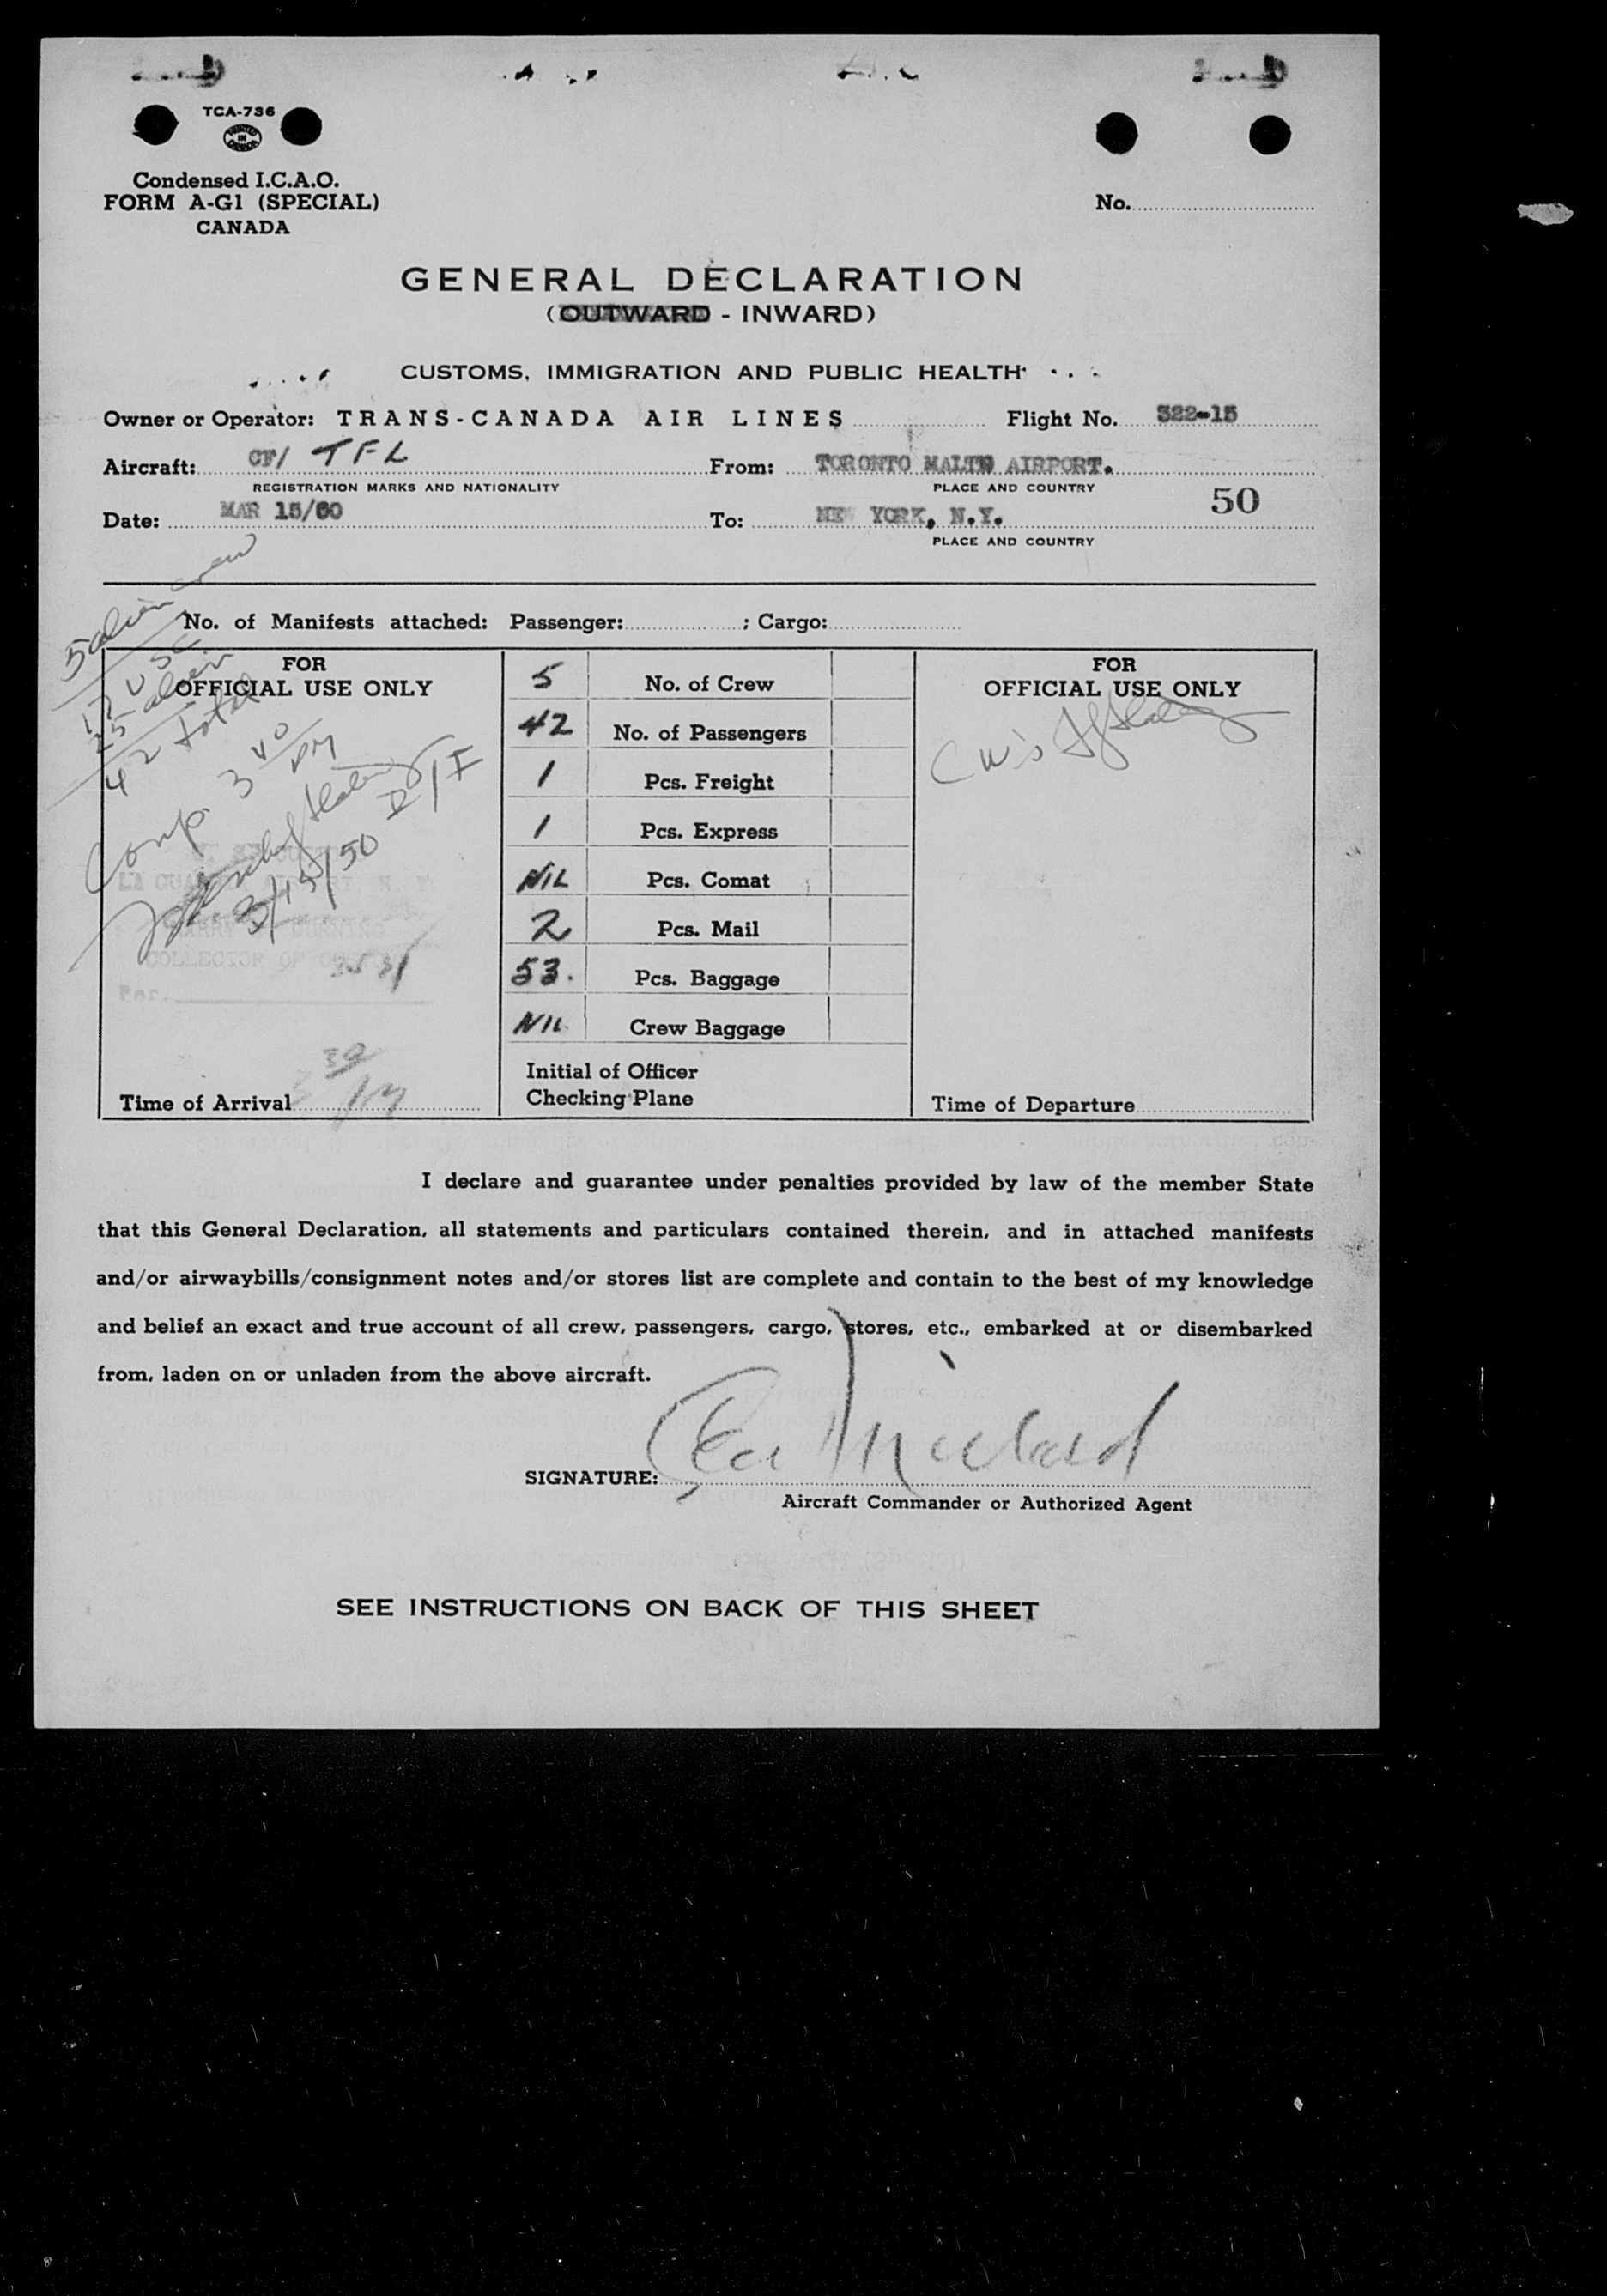 TCA-736
PRINTED IN CANADA
Condensed I.C.A.O.
FORM A-G1 (SPECIAL)
CANADA
No.
GENERAL DECLARATION
(OUTWARD - INWARD)
CUSTOMS, IMMIGRATION AND PUBLIC HEALTH
Owner or Operator: TRANS-CANADA AIR LINES Flight No. 322-15
Aircraft: CF/ TFL From: TORONTO MALTN AIRPORT.
REGISTRATION MARKS AND NATIONALITY PLACE AND COUNTRY
50
Date: MAR 15/50 To: NEW YORK, N.Y.
PLACE AND COUNTRY
5 alien crew
No. of Manifests attached: Passenger: ; Cargo:
17 USC
25 alien
42 total
FOR
OFFICIAL USE ONLY
Comp. 3 40 PM
3/15/50
LA GUA
COLLECTOR OF
Per.
Time of Arrival 3 30 PM
5 No. of Crew
42 No. of Passengers
1 Pcs. Freight
1 Pcs. Express
NIL Pcs. Comat
2 Pcs. Mail
53. Pcs. Baggage
NIL Crew Baggage
Initial of Officer
Checking Plane
FOR
OFFICIAL USE ONLY
Time of Departure
I declare and guarantee under penalties provided by law of the member State
that this General Declaration, all statements and particulars contained therein, and in attached manifests
and/or airwaybills/consignment notes and/or stores list are complete and contain to the best of my knowledge
and belief an exact and true account of all crew, passengers, cargo, stores, etc., embarked at or disembarked
from, laden on or unladen from the above aircraft.
SIGNATURE:
Aircraft Commander or Authorized Agent
SEE INSTRUCTIONS ON BACK OF THIS SHEET